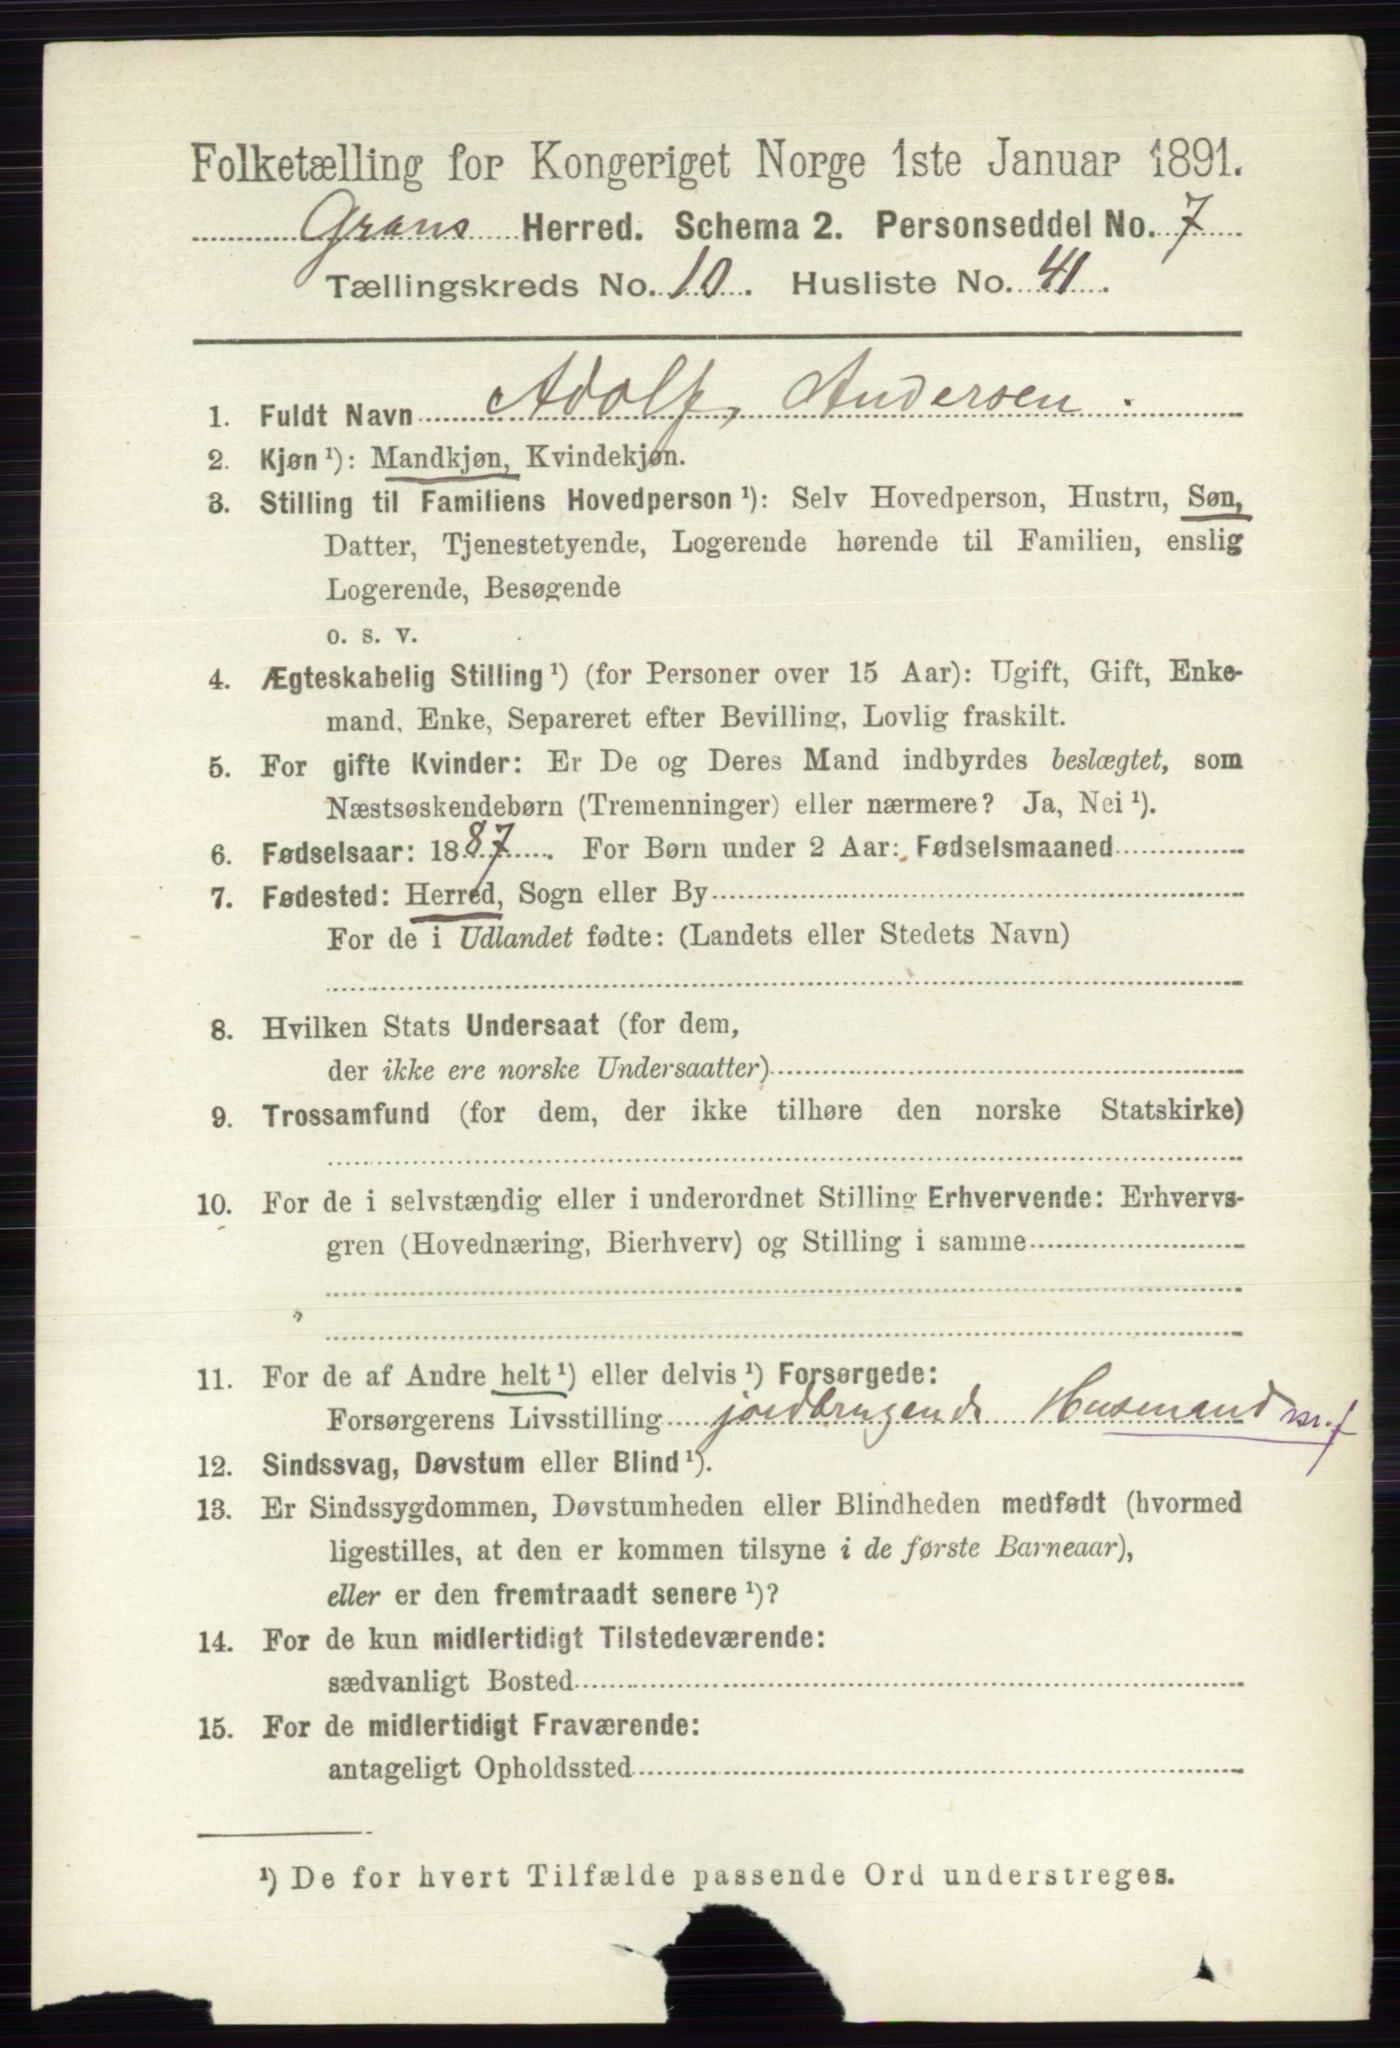 Folketælling for Kongeriget Norge 1ste Januar 1891.
Grans Herred. Schema 2. Personseddel No. 7
Tællingskreds No. 10. Husliste No. 41.
1. Fuldt Navn Adolf Andersen.
2. Kjøn ¹): Mandkjøn, Kvindekjøn.
3. Stilling til Familiens Hovedperson ¹): Selv Hovedperson, Hustru, Søn,
Datter, Tjenestetyende, Logerende hørende til Familien, enslig
Logerende, Besøgende
o. s. v.
4. Ægteskabelig Stilling ¹) (for Personer over 15 Aar): Ugift, Gift, Enke-
mand, Enke, Separeret efter Bevilling, Lovlig fraskilt.
5. For gifte Kvinder: Er De og Deres Mand indbyrdes beslægtet, som
Næstsøskendebørn (Tremenninger) eller nærmere? Ja, Nei ¹).
6. Fødselsaar: 1887. For Børn under 2 Aar: Fødselsmaaned
7. Fødested: Herred, Sogn eller By
For de i Udlandet fødte: (Landets eller Stedets Navn)
8. Hvilken Stats Undersaat (for dem,
der ikke ere norske Undersaatter)
9. Trossamfund (for dem, der ikke tilhøre den norske Statskirke)
10. For de i selvstændig eller i underordnet Stilling Erhvervende: Erhvervs-
gren (Hovednæring, Bierhverv) og Stilling i samme
11. For de af Andre helt ¹) eller delvis ¹) Forsørgede:
Forsørgerens Livsstilling jordbrugende Husmand m.f
12. Sindssvag, Døvstum eller Blind ¹).
13. Er Sindssygdommen, Døvstumheden eller Blindheden medfødt (hvormed
ligestilles, at den er kommen tilsyne i de første Barneaar),
eller er den fremtraadt senere ¹)?
14. For de kun midlertidigt Tilstedeværende:
sædvanligt Bosted
15. For de midlertidigt Fraværende:
antageligt Opholdssted
¹) De for hvert Tilfælde passende Ord understreges.